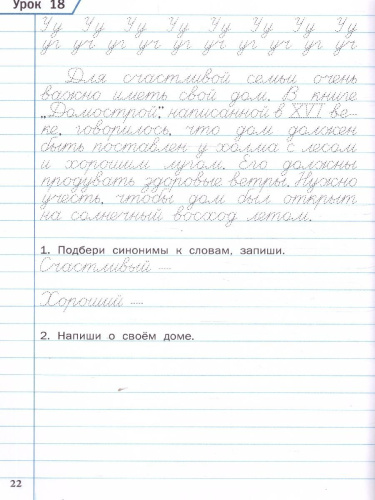 Урок 18
Уу Уу Уу Уу Уу Уу Уу Уу
уг уч уг уч уг уч уг уч уг уч
Для счастливой семьи очень
важно иметь свой дом. В книге
„Домострой", написанной в XVI ве-
ке, говорилось, что дом должен
быть поставлен у холма с лесом
и хорошим лугом. Его должны
продувать здоровые ветры. Нужно
учесть, чтобы дом был открыт
на солнечный восход летом.
1. Подбери синонимы к словам, запиши.
Счастливый —
Хороший —
2. Напиши о своём доме.
22